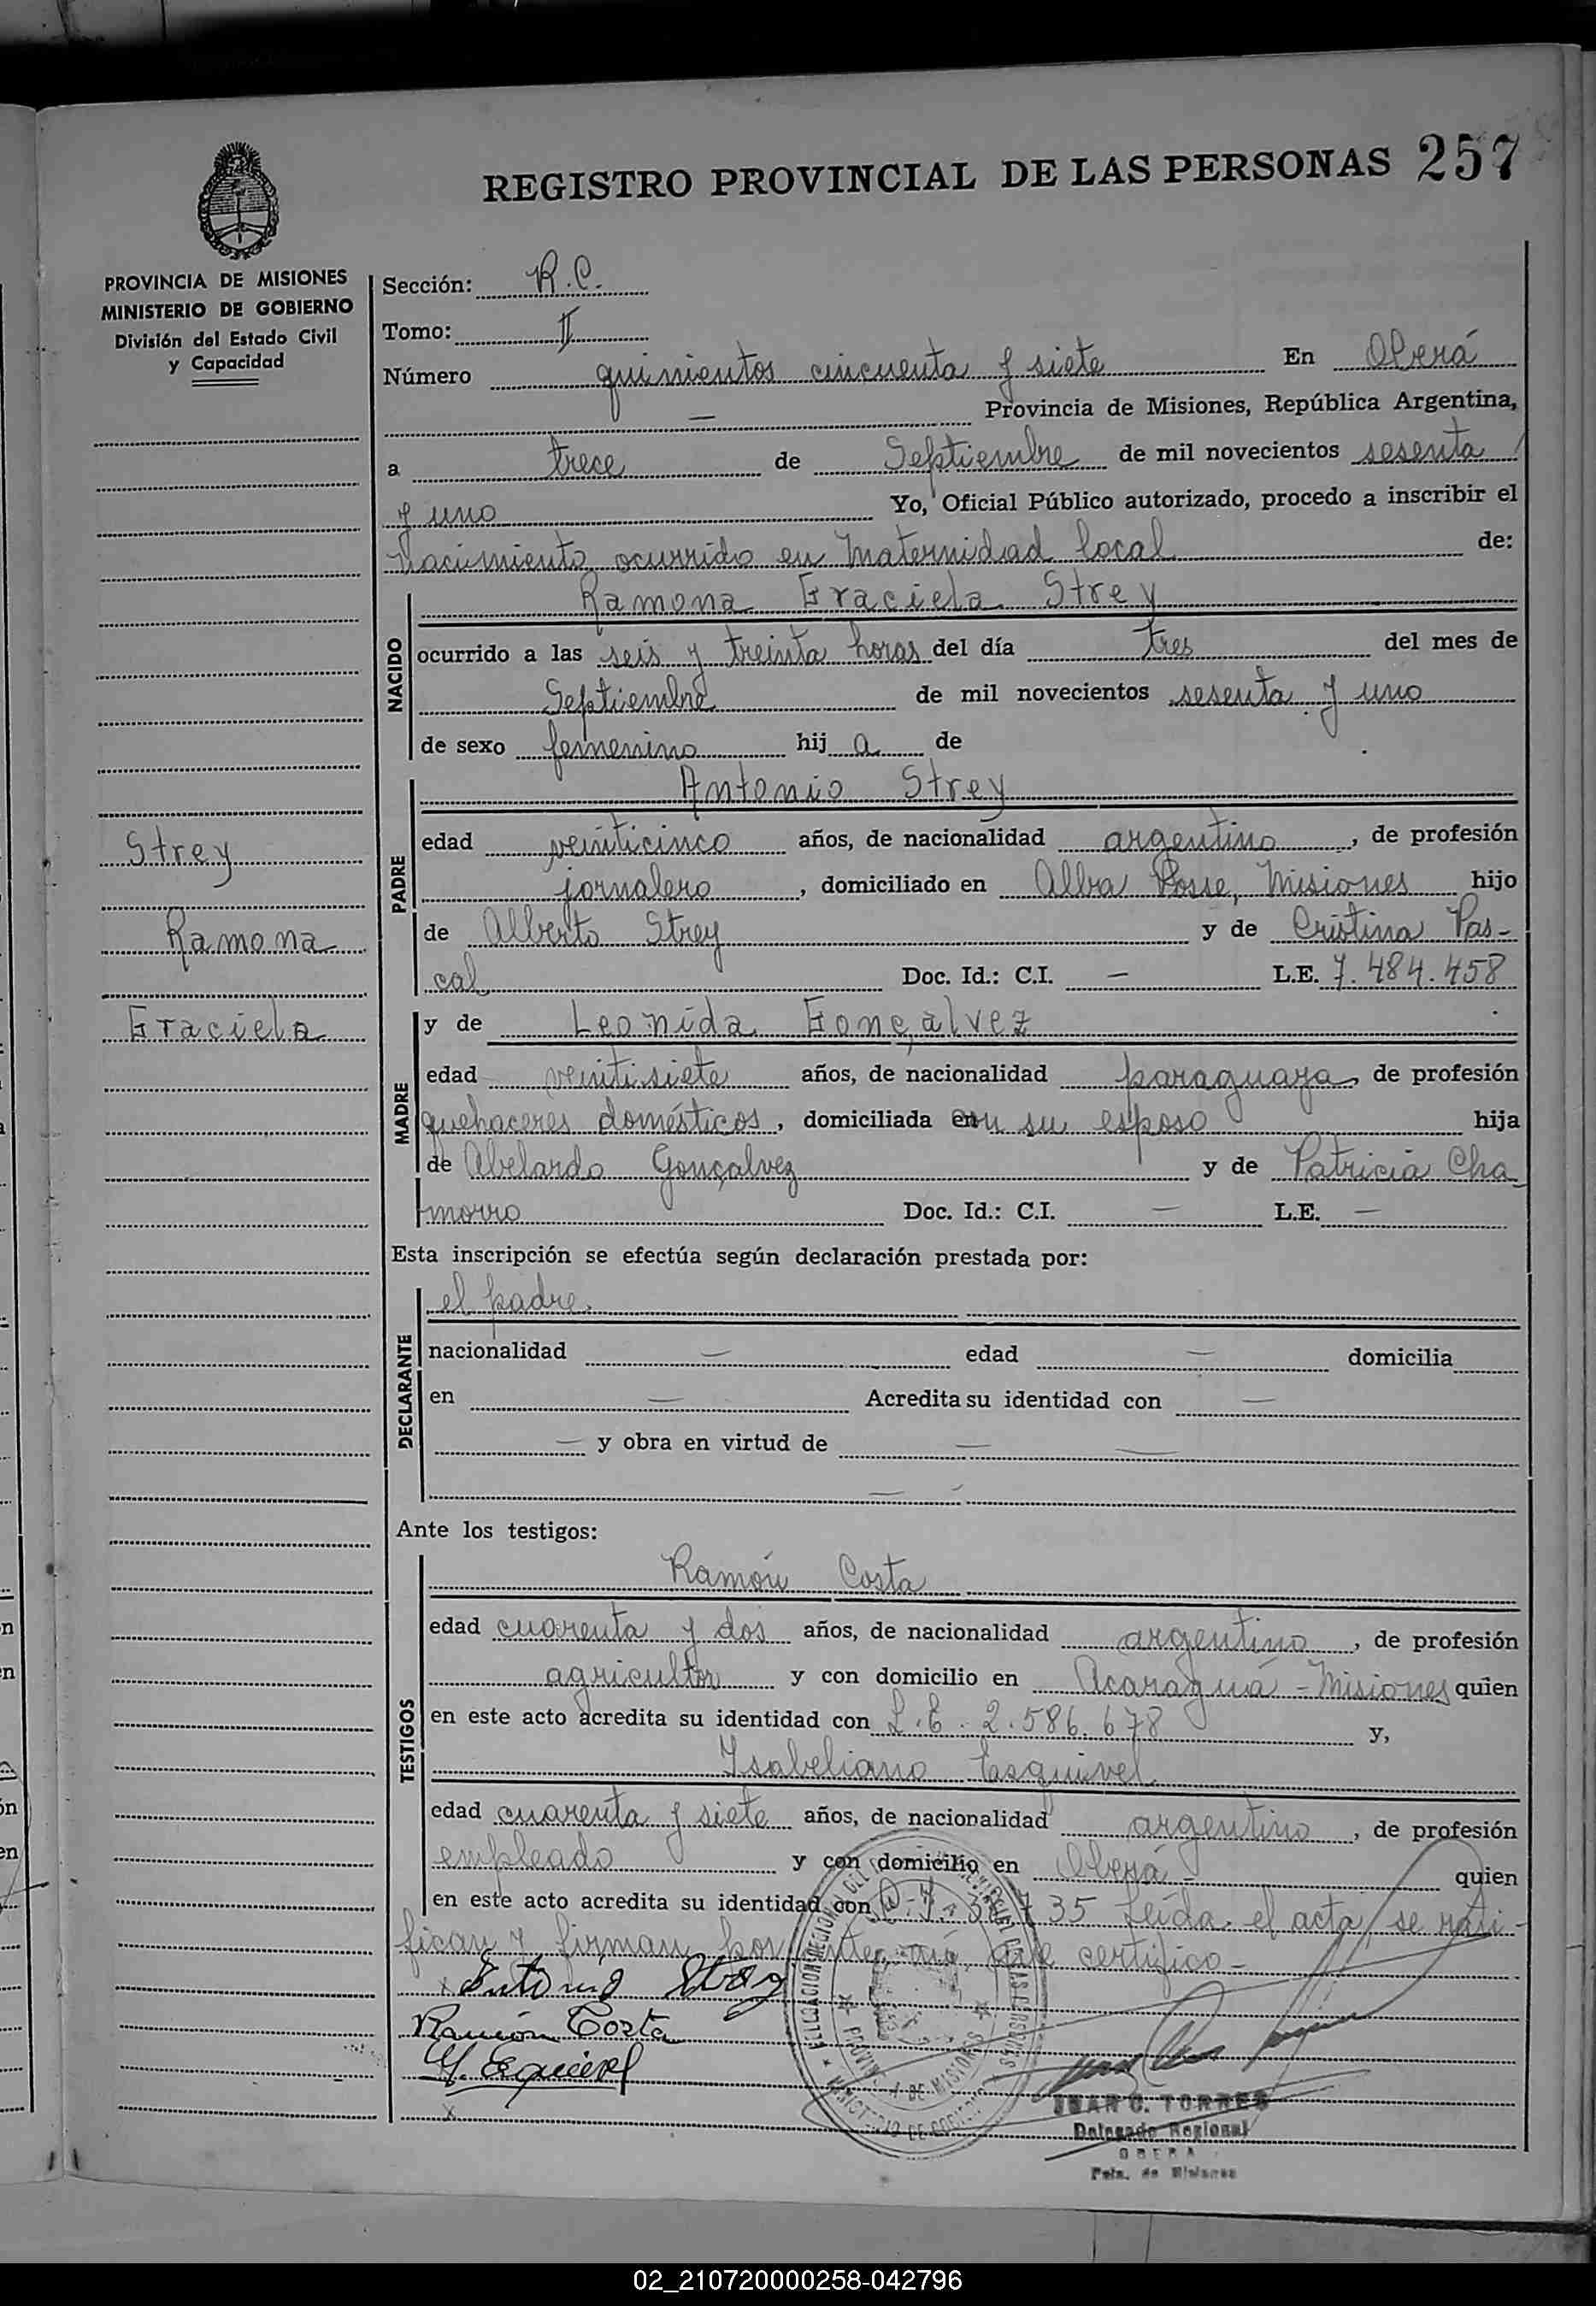 REGISTRO PROVINCIAL DE LAS PERSONAS 257
PROVINCIA DE MISIONES
MINISTERIO DE GOBIERNO
División del Estado Civil
y Capacidad
Sección: R.C.
Tomo: II
Número quinientos cincuenta y siete En Oberá
— Provincia de Misiones, República Argentina,
a trece de Septiembre de mil novecientos sesenta
y uno Yo, Oficial Público autorizado, procedo a inscribir el
Nacimiento ocurrido en Maternidad local de:
NACIDO
Ramona Graciela Strey
ocurrido a las seis y treinta horas del día tres del mes de
Septiembre de mil novecientos sesenta y uno
de sexo femenino hij a de
PADRE
Antonio Strey
edad veinticinco años, de nacionalidad argentino, de profesión
jornalero, domiciliado en Alba Posse, Misiones hijo
de Alberto Strey y de Cristina Pas-
cal Doc. Id.: C.I. — L.E. 7.484.458
MADRE
y de Leonida Gonçalvez
edad veintisiete años, de nacionalidad paraguaya, de profesión
quehaceres domésticos, domiciliada en su esposo hija
de Abelardo Gonçalvez y de Patricia Cha-
morro Doc. Id.: C.I. — L.E. —
Strey
Ramona
Graciela
Esta inscripción se efectúa según declaración prestada por:
DECLARANTE
el padre.
nacionalidad — edad — domicilia
en — Acredita su identidad con —
— y obra en virtud de — —
—
Ante los testigos:
TESTIGOS
Ramón Costa
edad cuarenta y dos años, de nacionalidad argentino, de profesión
agricultor y con domicilio en Acaraguá - Misiones quien
en este acto acredita su identidad con L.E. 2.586.678 y,
Ysabeliano Esquivel
edad cuarenta y siete años, de nacionalidad argentino, de profesión
empleado y con domicilio en Oberá quien
en este acto acredita su identidad con 35 Leída el acta, se rati-
fican y firman por ante mí, que certifico-
Antonio Strey
Ramón Costa
Y. Esquivel
PROVINCIA DE MISIONES
MINISTERIO DE GOBIERNO
JUAN C. TORRES
Delegado Regional
OBERA
Pcia. de Misiones
02_210720000258-042796